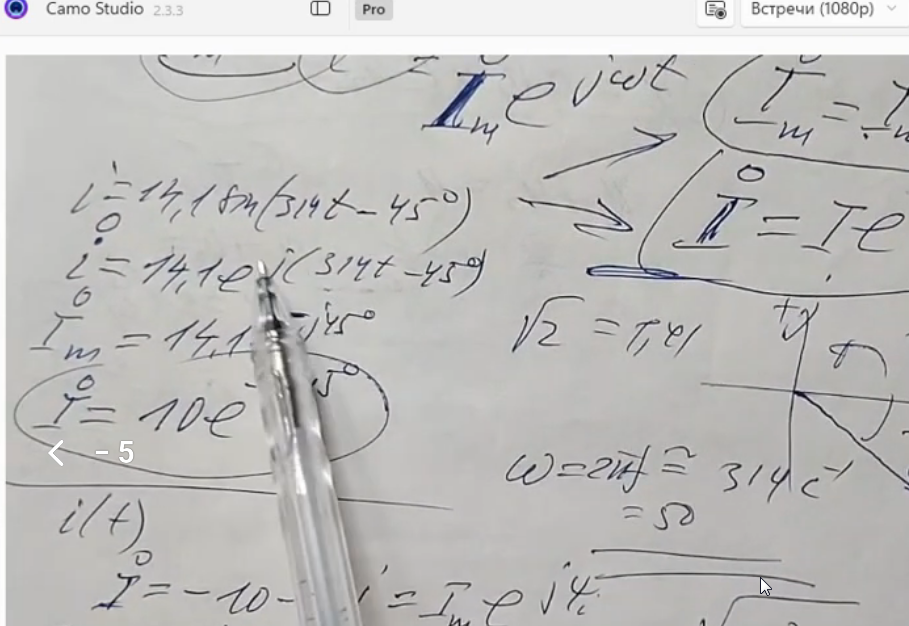 Camo Studio 2.3.3 Pro Встречи (1080p)
I̊ₘ e^jωt
I̊ₘ = Iₘ
i = 14,1 sin(314t − 45°)
I̊ = I e
i̊ = 14,1 e^j(314t − 45°)
I̊ₘ = 14,1 −j45°
√2 = 1,41
+j
+
I̊ = 10 e^− 5°
− 5
ω = 2πf = 314 c⁻¹
= 50
i(t)
I̊ = −10 − = Iₘ e^jψᵢ